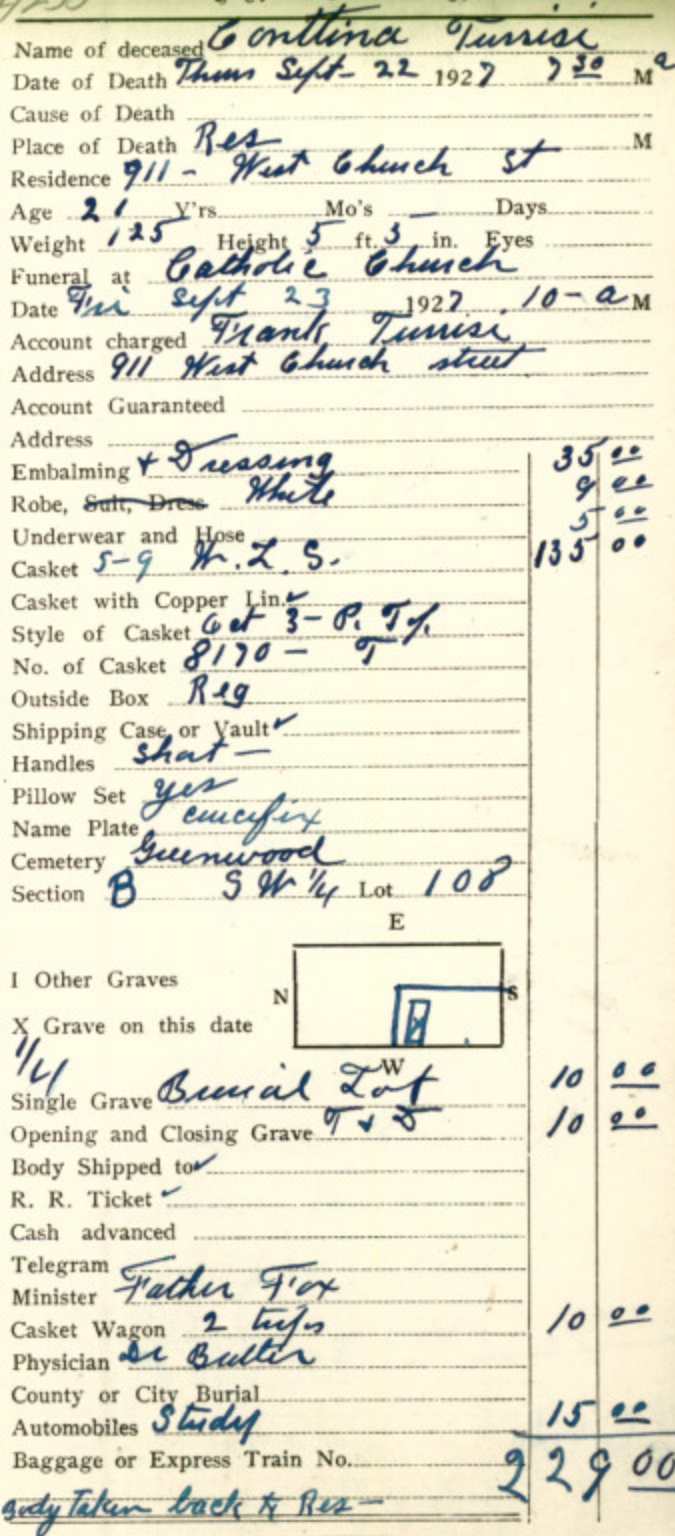 Name of deceased Conttina Turrisi
Date of Death Thurs Sept - 22 1927 7 30 M a
Cause of Death
Place of Death Res M
Residence 911 - West Church St
Age 21 Y'rs Mo's — Days
Weight 125 Height 5 ft. 3 in. Eyes
Funeral at Catholic Church
Date Fri Sept 23 1927 10 - a M
Account charged Frank Turrisi
Address 911 West Church street
Account Guaranteed
Address
Embalming + Dressing 35 00
Robe, Suit, Dress White 9 00
Underwear and Hose 5 00
Casket 5-9 W. L. S. 135 00
Casket with Copper Lin. ✓
Style of Casket Oct 3 - P. Tf.
No. of Casket 8170 - T
Outside Box Reg
Shipping Case or Vault ✓
Handles Short —
Pillow Set yes
Name Plate crucifix
Cemetery Greenwood
Section B S W 1/4 Lot 108
E
I Other Graves
N S
X Grave on this date
W
1/4
Single Grave Burial Lot 10 00
Opening and Closing Grave T & D 10 00
Body Shipped to ✓
R. R. Ticket ✓
Cash advanced
Telegram
Minister Father Fox
Casket Wagon 2 trips 10 00
Physician Dr Butler
County or City Burial
Automobiles Study 15 00
Baggage or Express Train No. 229 00
Body Taken back to Res —